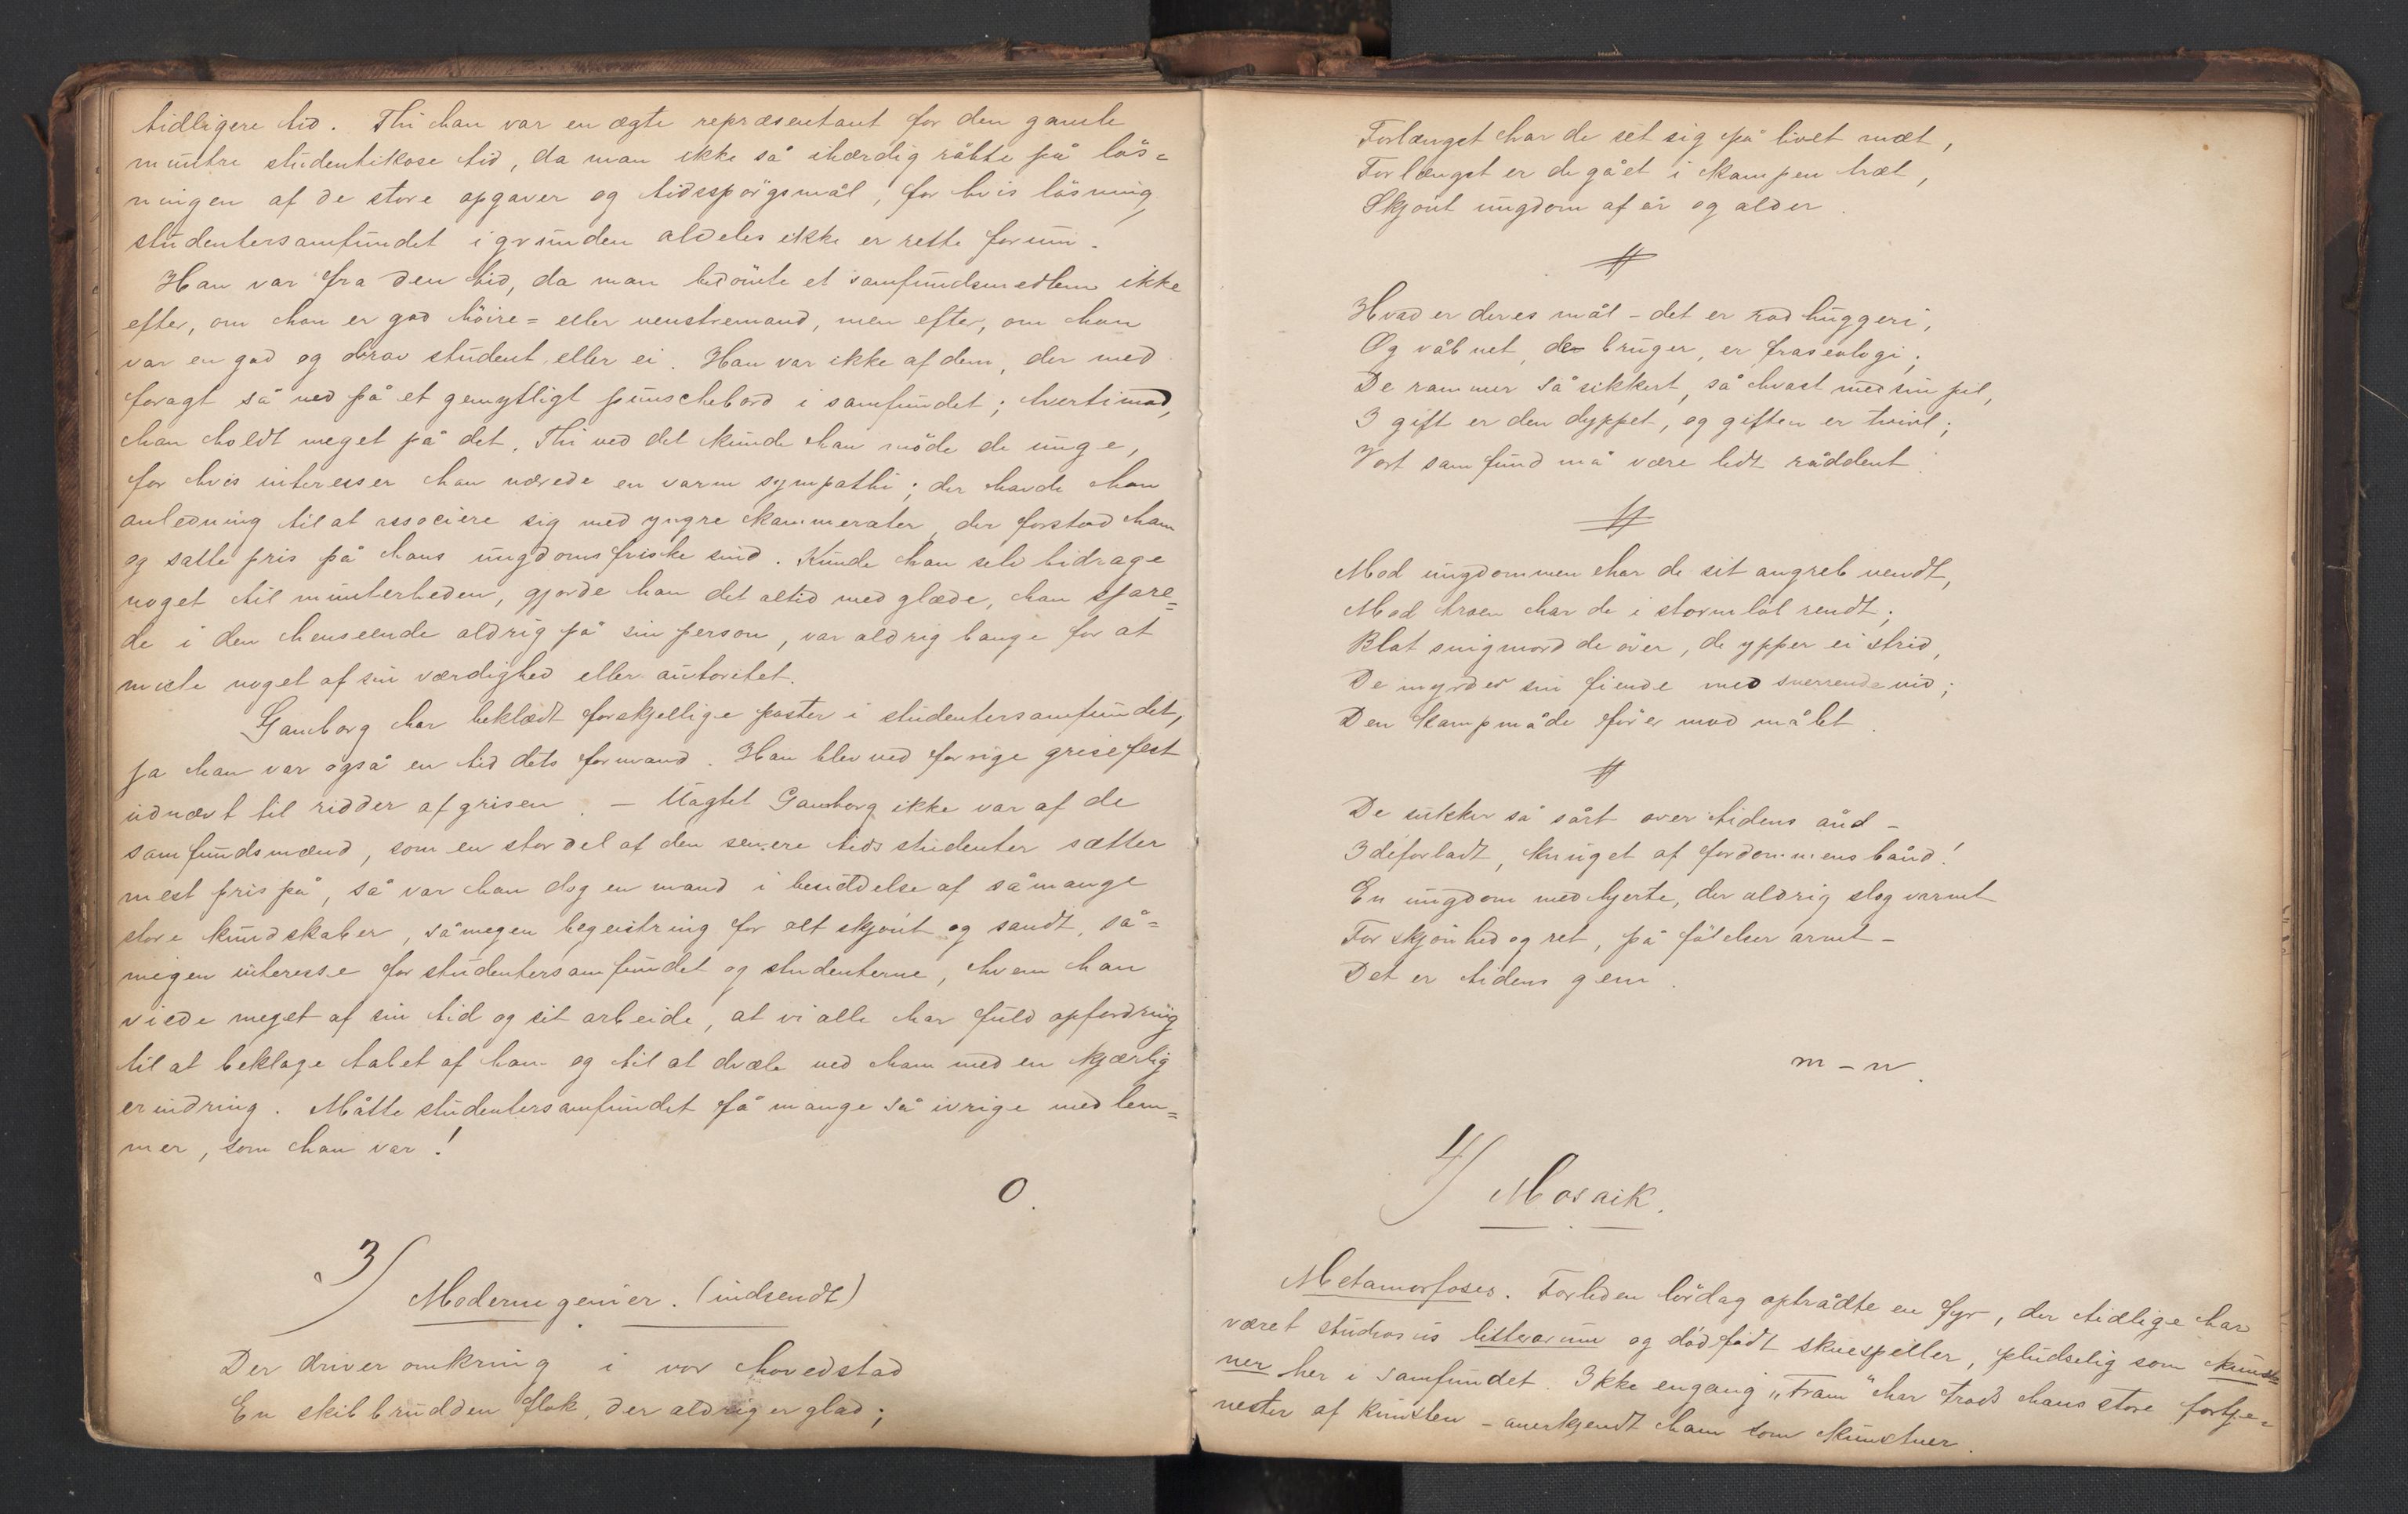 tidligere tid. Thi han var en ægte repræsentant for den gamle
muntre studentikose tid, da man ikke så ihærdig råbte på lös=
ningen af de store opgaver og tidsspörgsmål, for hvis lösning
studentersamfundet igrunden aldeles ikke er rette forum.
Han var fra den tid, da man bedömte et samfundsmedlem ikke
efter, om han er god höire= eller venstremand, men efter, om han
var en god og brav student eller ei. Han var ikke af dem, der med
foragt så ned på et gemytligt punschebord i samfundet; hvertimod,
han holdt meget på det. Thi ved det kunde han möde de unge,
for hvis interesser han nærede en varm sympathi; der havde han
anledning til at associere sig med yngre kammerater, der forstod ham
og satte pris på hans ungdomsfriske sind. Kunde han selv bidrage
noget til munterheden, gjorde han det altid med glæde, han spare=
de i den henseende aldrig på sin person, var aldrig bange for at
miste noget af sin værdighed eller autoritet.
Gamborg har beklædt forskjellige poster i studentersamfundet,
ja han var også en tid dets formand. Han blev ved forrige grisefest
udnævnt til ridder af grisen. — Uagtet Gamborg ikke var af de
samfundsmænd, som en stor del af den senere tids studenter sætter
mest pris på, så var han dog en mand i besiddelse af såmange
store kundskaber, såmegen begeistring for alt skjönt og sandt, så=
megen interesse for studentersamfundet og studenterne, hvem han
viede meget af sin tid og sit arbeide, at vi alle har fuld opfordring
til at beklage tabet af ham og til at dvæle ved ham med en kjærlig
erindring. Måtte studentersamfundet få mange så ivrige medlem=
mer, som han var!
O.
3) Moderne genier. (indsendt)
Der driver omkring i vor hovedstad
En skibbrudden flok, der aldrig er glad;
Forlænget har de sét sig på livet mæt,
Forlænget er de gået i kampen træt,
Skjönt ungdom af år og alder.
Hvad er deres mål – det er radhuggeri,
Og våbnet, de bruger, er fraseologi;
De rammer så sikkert, så hvast med sin pil,
I gift er den dyppet, og giften er tvivl;
Vort samfund må være lidt råddent.
Mod ungdommen har de sit angreb vendt,
Mod troen har de i stormlöb rendt;
Blot snigmord de över, de ypper ei strid,
De myrder sin fiende med snerrende vid;
Den kampmåde förer mod målet.
De sukker så sårt over tidens ånd –
Idéforladt, knuget af fordommens bånd!
En ungdom med hjerte, der aldrig slog varmt
For skjönhed og ret, på fölelser armt –
Det er tidens gem.
m – n.
4) Mosaik.
Metamorfoses. Forleden lördag optrådte en fyr, der tidlige har
været studiosus litterarum og dödfödt skuespiller, pludselig som kunst=
ner her i samfundet. Ikke engang „Fram" har trods hans store fortje=
nester af kunsten – anerkjendt ham som kunstner.